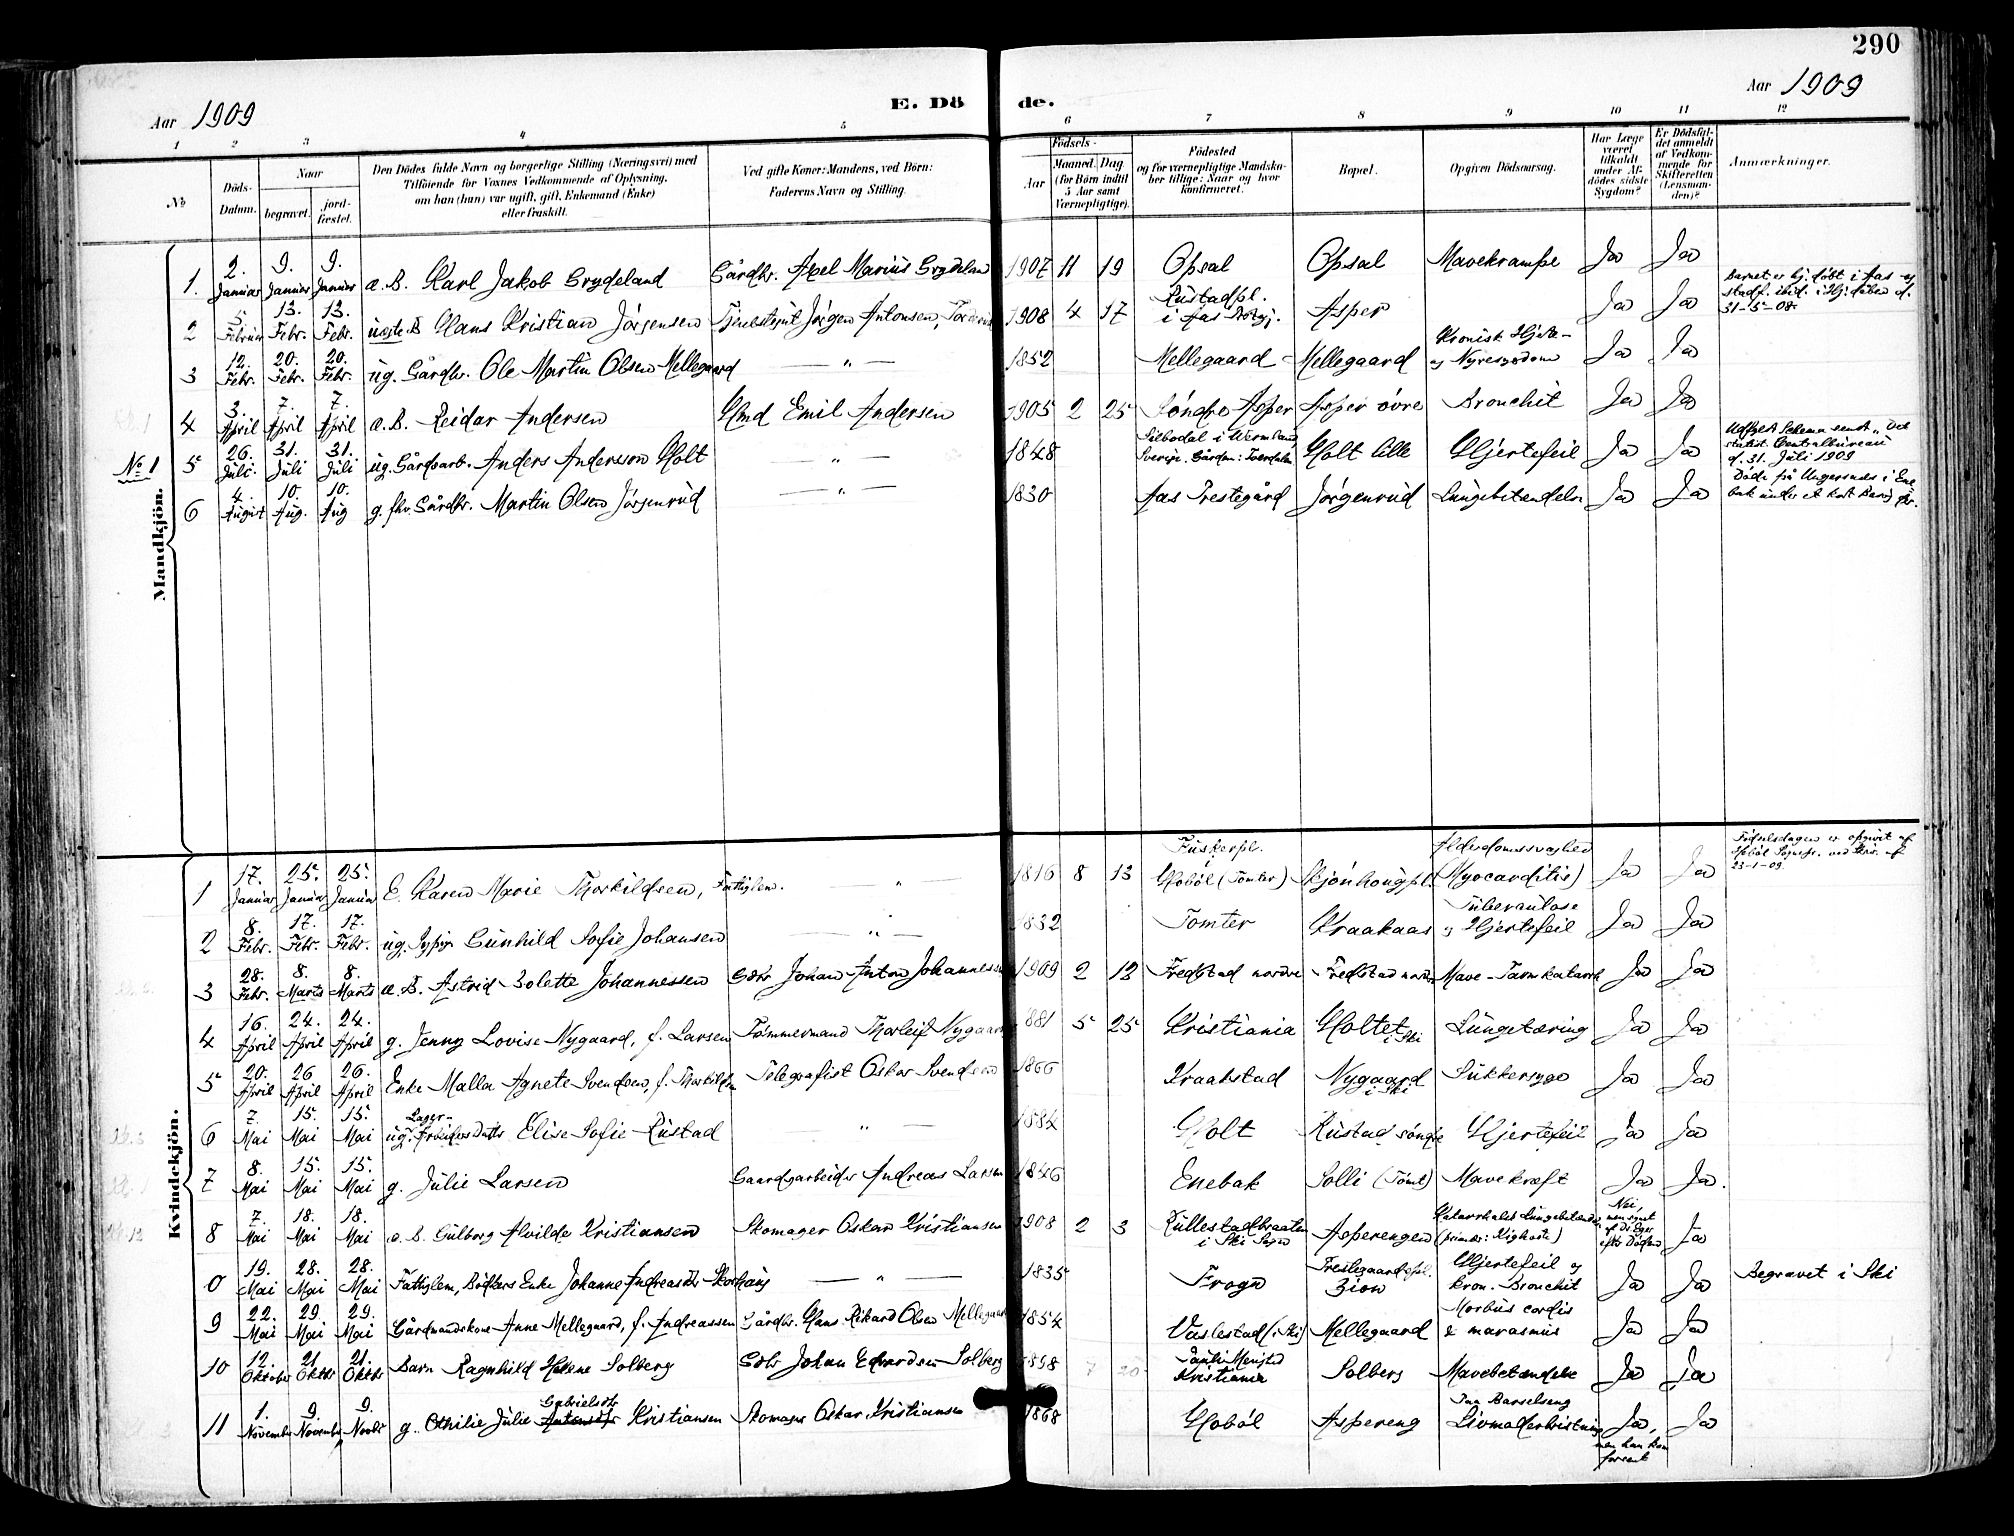 290
Aar 1909
E. Dö de.
Aar 1909
1 2 3 4 5 6 7 8 9 10 11 12
No
Döds-Datum.
Naar
begravet.
jord-fæstet.
Den Dödes fulde Navn og borgerlige Stilling (Næringsvei) med
Tilföiende for Voxnes Vedkommende af Oplysning,
om han (hun) var ugift, gift, Enkemand (Enke)
eller fraskilt.
Ved gifte Koner: Mandens, ved Börn:
Faderens Navn og Stilling.
Födsels-
Aar
Maaned. Dag
(for Börn indtil
5 Aar samt
Værnepligtige).
Födested
og for værnepligtige Mandska-
ber tillige: Naar og hvor
konfirmeret.
Bopæl.
Opgiven Dödsaarsag.
Har Læge
været
tilkaldt
under Af-
dödes sidste
Sygdom?
Er Dödsfal-
det anmeldt
af Vedkom-
mende for
Skifteretten
(Lensman-
den)?
Anmærkninger.
Mandkjön.
1. 2. Januar 9. Januar 9. Januar æ.B. Karl Jakob Grydeland Gårdbr. Axel Marius Grydeland 1907 11 19 Opsal Opsal Mavekrampe Ja Ja
2 5. Februar 13. Febr. 13. Febr. uægte B. Hans Kristian Jörgensen Jörgen Antonsen, 1908 4 17 Rustadpl. i Aas Asper Ja Ja Barnet er hj. döbt i Aas og stadf. ibid. i Hj.dåben d. 31-5-08.
3 12. Febr. 20. Febr. 20. Febr. ug. Gårdbr. Ole Martin Olsen Mellegaard — " — 1852 Mellegaard Mellegaard Kronisk Hjerte- og Nyresygdom Ja Ja
4 3. April 7. April 7. April æ.B. Reidar Andersen Hmd Emil Andersen 1905 2 25 Söndre Asper Asper övre Bronchit Ja Ja
No 1 5 26. Juli. 31. Juli 31. Juli ug. Gårdarb. Anders Andersson Holt — " — 1848 Silbodal i Wermland, Sverige. Holt lille Hjertefeil Ja Ja Udfyldt Schema sendt "Det statist. Centralbureau d. 31. Juli 1909
6 4. August 10. Aug. 10. Aug g. fhv. Gårdbr. Martin Olsen Jörgenrud — " — 1830 Aas Prestegård Jörgenrud Lungebetændelse Ja Ja Döde på Ungersnes i Enebak under et kort Besög der.
Kvindekjön.
1 17. Januar 25. Januar 25. Januar E. Karen Marie Thorkildsen, Fattiglem. " — 1816 8 13 Fuskerpl. i Hobøl (Tomter) Skjönhougpl. Alderdomssvaghed (Myocarditis) Ja Ja Födselsdagen er opgivet af Hobøl Sognepr. ved Skr. af 23-1-09.
2 8. Febr. 17. Febr. 17. Febr. ug. Gunhild Sofie Johansen — " — 1832 Tomter Kraakaas Tuberculose og Hjertefeil Ja Ja
3 28. Febr. 8. Marts 8. Marts æ.B. Astrid Bolette Johannessen Gbr Johan Anton Johannessen 1909 2 13 Fredstad nordre Fredstad nordre Mave-Tarmkatarrh Ja Ja
4 16. April 24. April 24. April g. Jenny Lovise Nygaard, f. Larsen Tömmermand Thorleif Nygaard 1881 5 25 Kristiania Holtet i Ski Lungetæring Ja Ja
5 20. April 26 April 26. April Enke Malla Agnete Svendsen, f. Thorkildsen Telegrafist Oskar Svendsen 1866 Kraakstad Nygaard i Ski Sukkersyge Ja Ja
6 7. Mai 15. Mai 15. Mai ug. Lager-Arbeiders Datter Elise Sofie Rustad — " — 1884 Holt Rustad söndre Hjertefeil Ja Ja
7 8. Mai 15. Mai 15. Mai g. Julie Larsen Gaardsarbeider Andreas Larsen 1846 Enebak Solli (Tomt) Mavekræft Ja Ja.
8 7. Mai 18. Mai 18. Mai æ.B. Gulborg Alvilde Kristiansen Skomager Oskar Kristiansen 1908 2 3 Kullestadbraaten i Ski Sogn Asperengen Katarrhalsk Lungebetændelse (primær: Kighoste) Nei, men synet af Dr Eger efter Döden Ja
0 19. Mai 28. Mai 28. Mai Fattiglem, Bödkers Enke Johanne Andreasdtr Skorhaug — " — 1835 Frogn Prestegaardspl. Zion Hjertefeil og kron. Bronchit Ja Ja Begravet i Ski
9 22. Mai 29. Mai 29. Mai Gårdmandskone Anne Mellegaard, f. Andreassen Gårdbr. Hans Rikard Olsen Mellegaard 1854 Vaslestad (i Ski) Mellegaard Morbus cordis & marasmus Ja Ja
10 12. Oktober 21. Oktbr 21. Oktbr Barn Ragnhild Helene Solberg Gbr Johan Edvardsen Solberg 1898 7 20 Kristiania Solberg Mavebetændelse Ja Ja
11 1. November 9. November 9. Novbr g. Othilie Julie Gabrielsdtr Antonsdtr Kristiansen Skomager Oskar Kristiansen 1868 Hobøl Aspereng Livmoderbristning Ja, men han kom forsent Ja